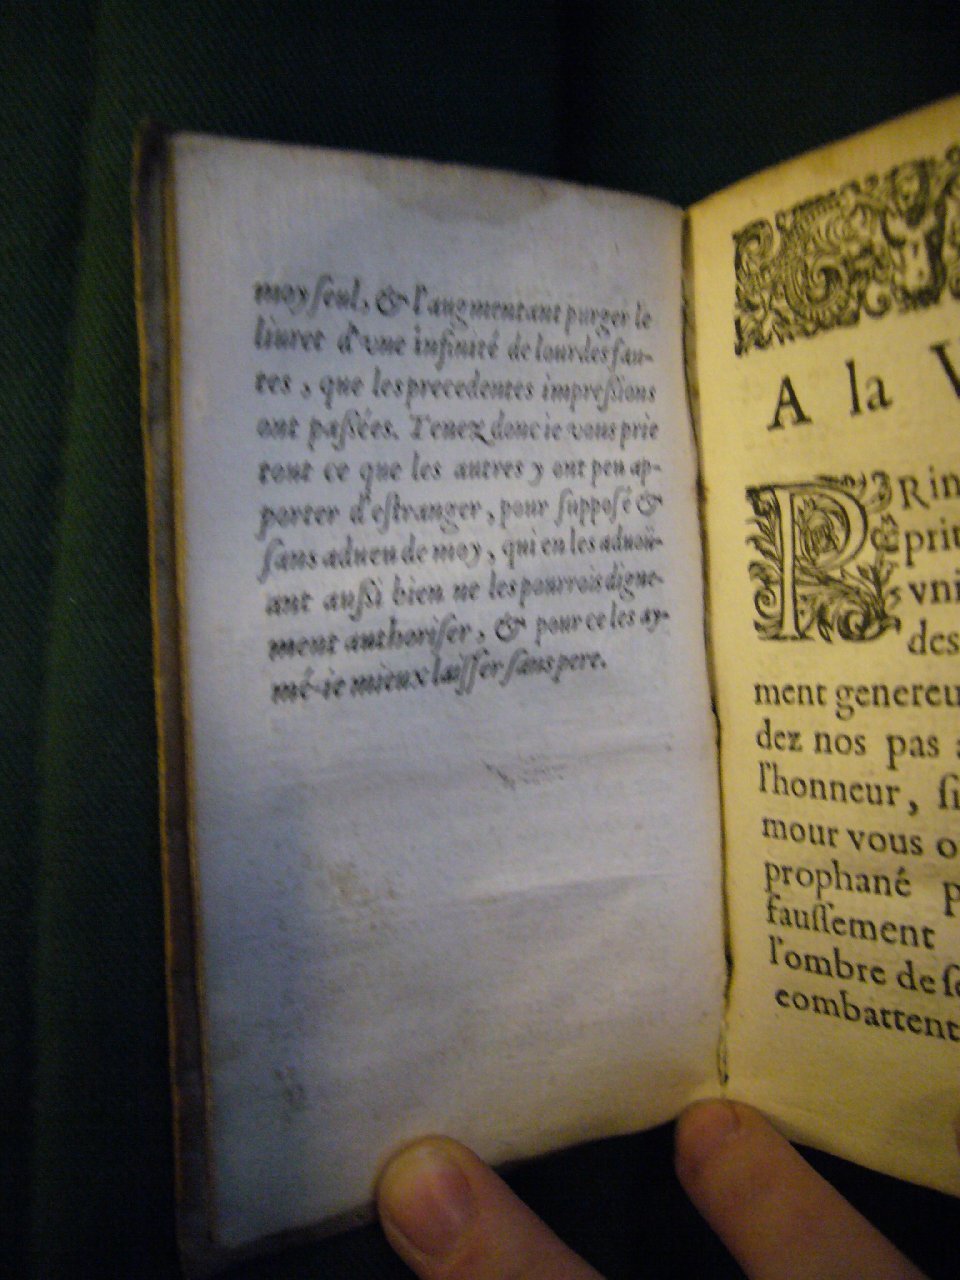 moy seul, & l'augmentant purger le
liuret d'vne infinité de lourdes fau-
tes, que les precedentes impreſſions
ont paſſées. Tenez donc ie vous prie
tout ce que les autres y ont peu ap-
porter d'eſtranger, pour ſuppoſé &
ſans adueu de moy, qui en les aduoü-
ant auſſi bien ne les pourrois digne-
ment authoriſer, & pour ce les ay-
mé-ie mieux laiſſer ſans pere.
A la V
PRin
prit
vni
des
ment genereu
dez nos pas
l'honneur, ſi
mour vous o
prophané p
fauſſement
l'ombre de ſe
combattent